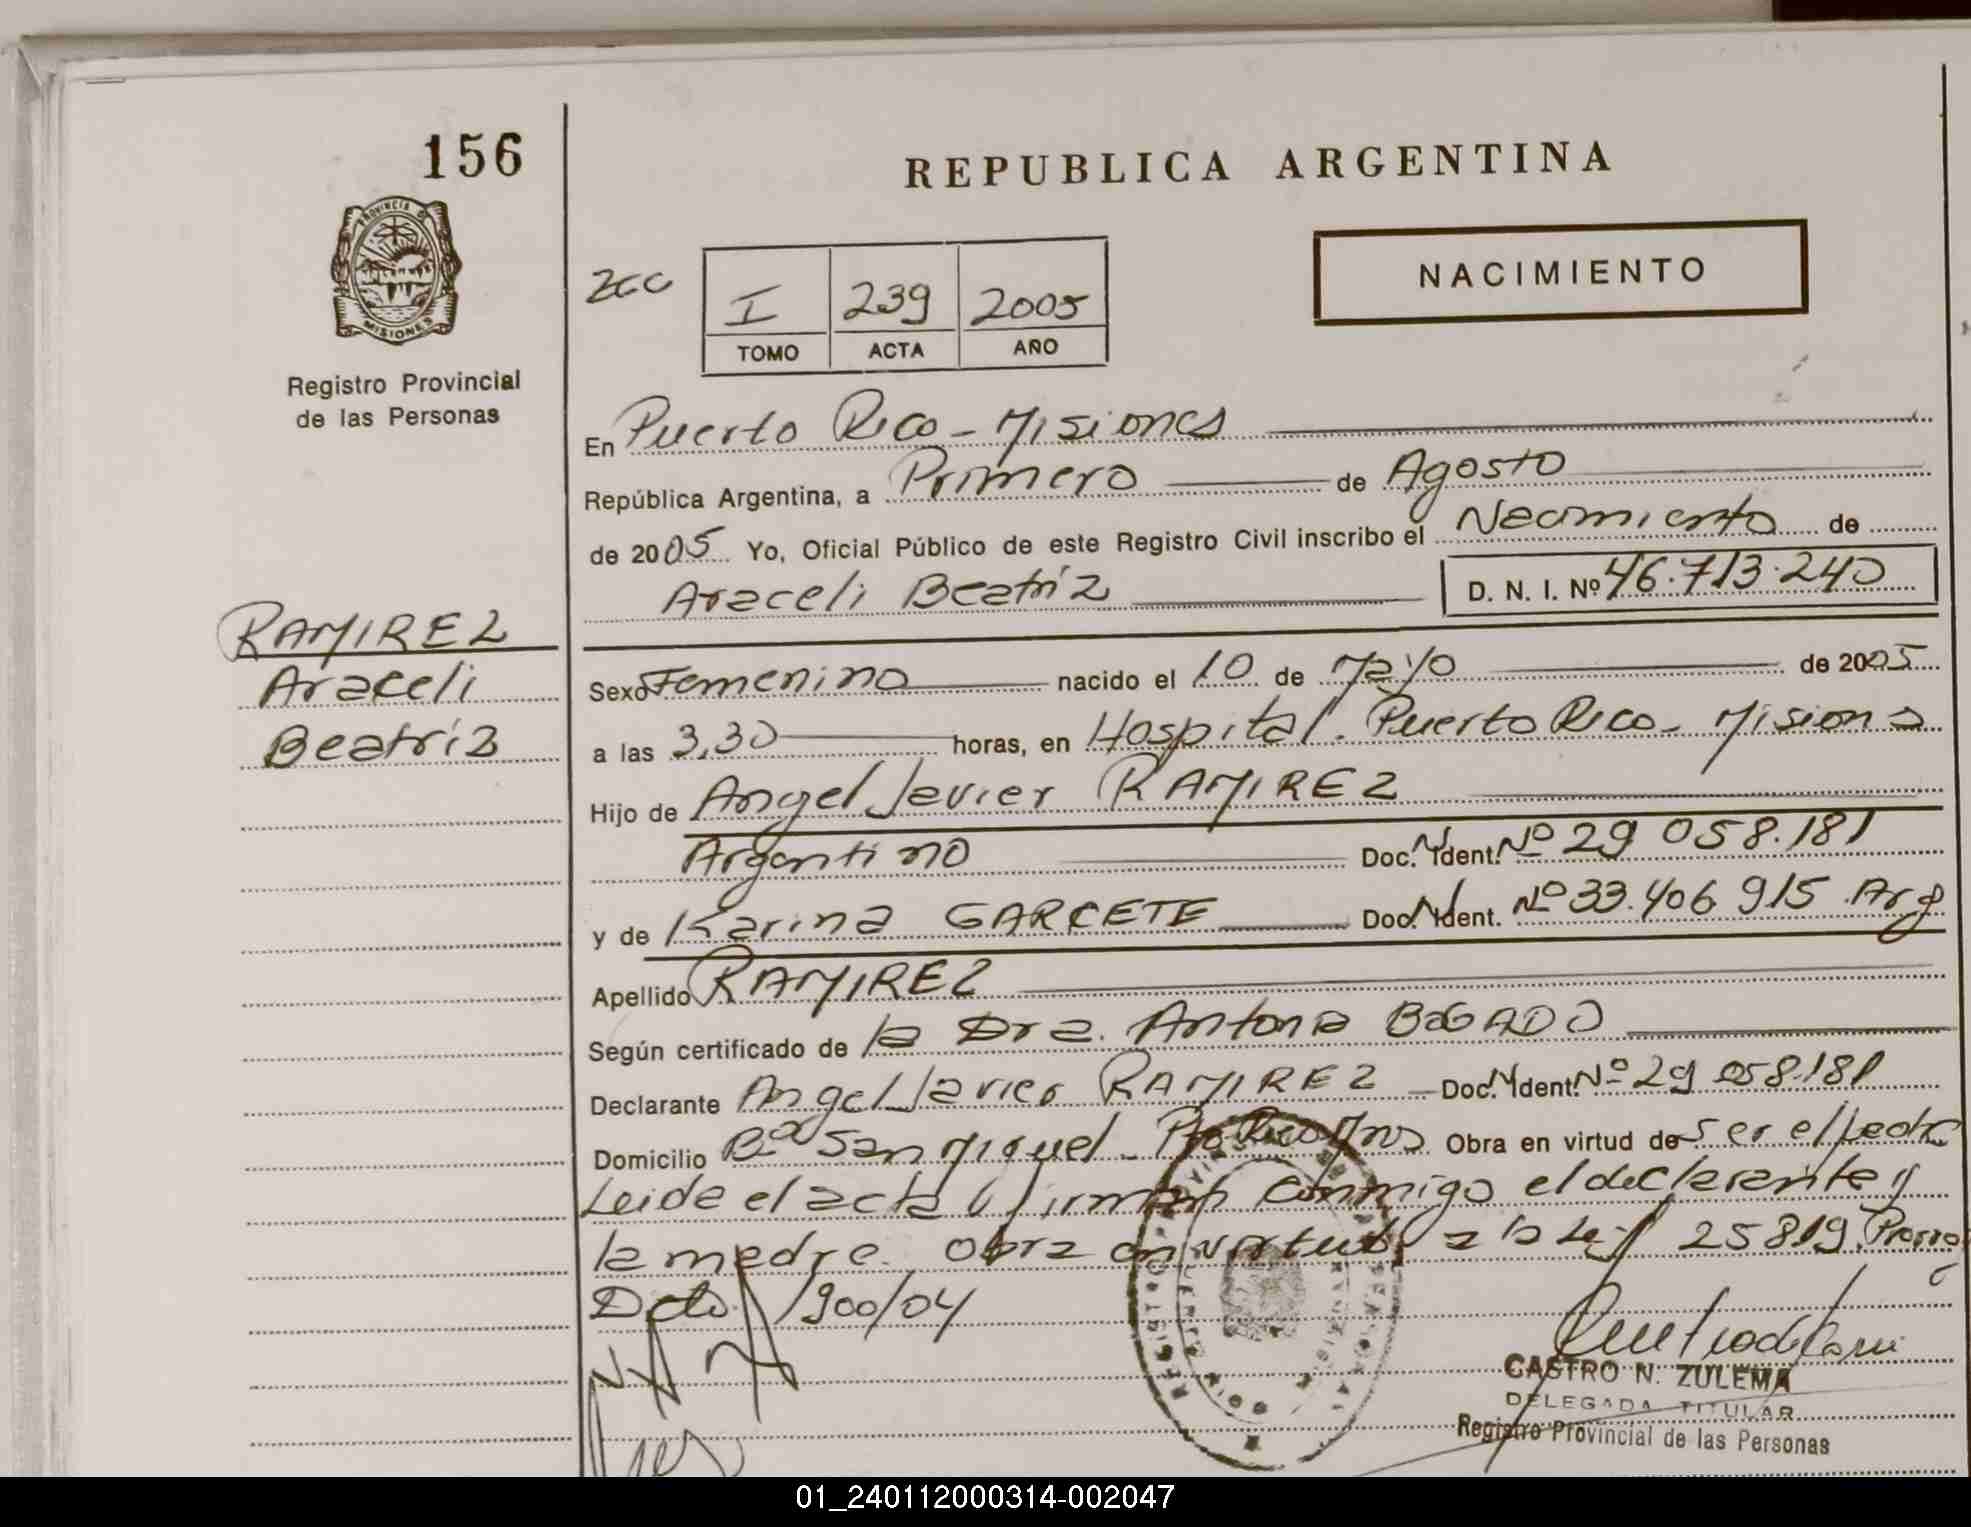 156
REPUBLICA ARGENTINA
PROVINCIA DE
MISIONES
NACIMIENTO
I 239 2005
TOMO ACTA AÑO
Registro Provincial
de las Personas
En Puerto Rico - Misiones
República Argentina, a Primero de Agosto
de 2005 Yo, Oficial Público de este Registro Civil inscribo el Nacimiento de
Araceli Beatriz D. N. I. Nº 46.713.240
RAMIREZ
Araceli
Beatríz
Sexo Femenino nacido el 10 de Mayo de 2005
a las 3,30 horas, en Hospital. Puerto Rico - Misiones
Hijo de Angel Javier RAMIREZ
Argentino Doc. Ident. Nº 29 058.181
y de Karina GARCETE Doc. Ident. Nº 33.406 915 Arg
Apellido RAMIREZ
Según certificado de la Dra. Antonia BOGADO
Declarante Angel Javier RAMIREZ Doc. Ident. Nº 29 058.181
Domicilio Bº San Miguel - Pto Rico Mnes Obra en virtud de ser el padre
Leida el acta y firman conmigo el declarante y
la madre. Obra en virtud a la Ley 25819 Prorro
Dcto 1900/04
CASTRO N. ZULEMA
DELEGADA TITULAR
Registro Provincial de las Personas
01_240112000314-002047